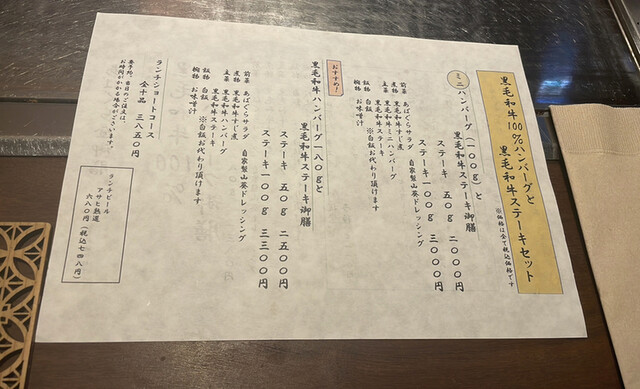 黒毛和牛100%ハンバーグと
黒毛和牛ステーキセット
※価格は全て税込価格です
ミニハンバーグ(一〇〇g)と
黒毛和牛ステーキ御膳
ステーキ 五〇g 二〇〇〇円
ステーキ一〇〇g 三〇〇〇円
前菜 あばぐらサラダ 自家製山葵ドレッシング
煮物 黒毛和牛すじ煮
主菜 黒毛和牛ミニハンバーグ
黒毛和牛ステーキ
飯物 白飯 ※白飯お代わり頂けます
椀物 お味噌汁
おすすめ!
黒毛和牛ハンバーグ一八〇gと
黒毛和牛ステーキ御膳
ステーキ 五〇g 二五〇〇円
ステーキ一〇〇g 三三〇〇円
前菜 あばぐらサラダ 自家製山葵ドレッシング
煮物 黒毛和牛すじ煮
主菜 黒毛和牛ハンバーグ
黒毛和牛ステーキ
飯物 白飯 ※白飯お代わり頂けます
椀物 お味噌汁
ランチショートコース
全十品 三八五〇円
要予約、当日のご注文は、
お時間がかかる場合がございます。
ランチビール
アサヒ熟選
六八〇円(税込七四八円)